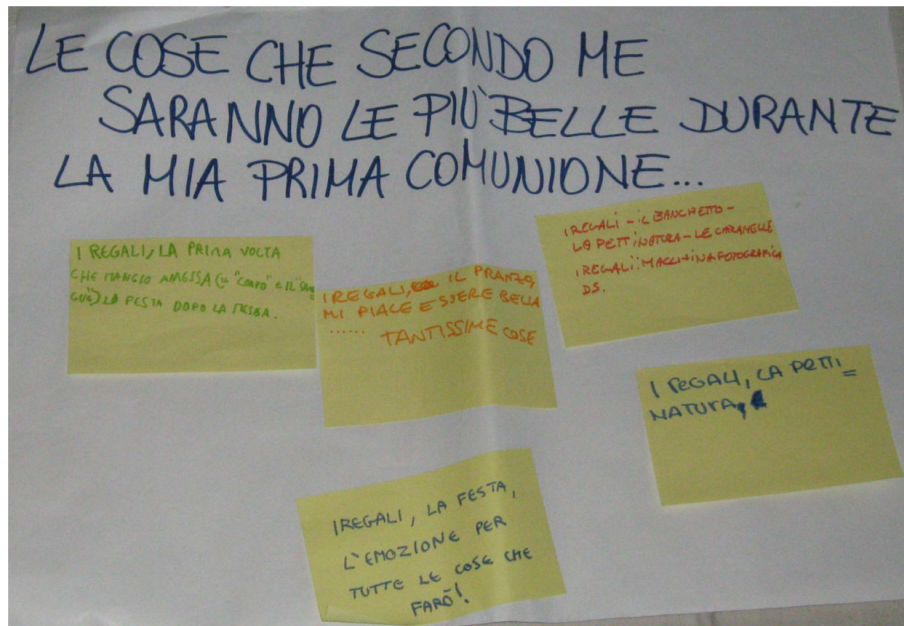 LE COSE CHE SECONDO ME
SARANNO LE PIÙ BELLE DURANTE
LA MIA PRIMA COMUNIONE...
I REGALI, LA PRIMA VOLTA
CHE MANGIO A MESSA (IL "CORPO" E IL "SAN
GUE") LA FESTA DOPO LA MESSA.
I REGALI, IL PRANZO,
MI PIACE ESSERE BELLA
...... TANTISSIME COSE
I REGALI - IL BANCHETTO -
LA PETTINATURA - LE CARAMELLE
I REGALI: MACCHINA FOTOGRAFICA
DS.
I REGALI, LA PETTI=
NATURA,
I REGALI, LA FESTA,
L'EMOZIONE PER
TUTTE LE COSE CHE
FARÒ!